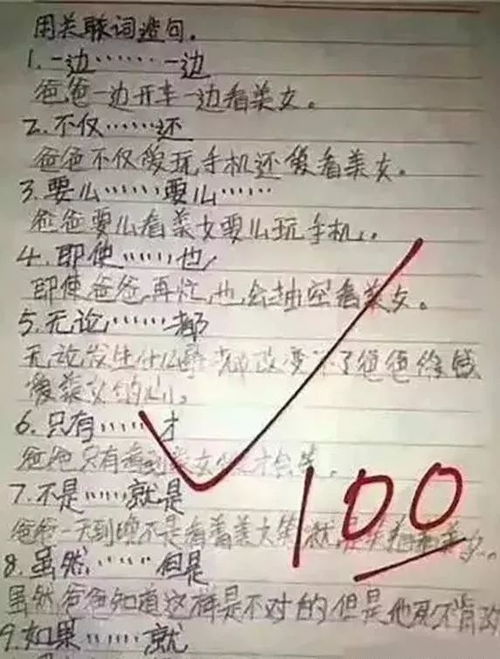 用关联词造句.
1.一边……一边
爸爸一边开车一边看美女。
2.不仅……还
爸爸不仅爱玩手机还爱看美女。
3.要么……要么……
爸爸要么看美女要么玩手机。
4.即使……也
即使爸爸再忙,也会抽空看美女。
5.无论……都
无论发生什么事都改变不了爸爸
爱美女的心。
6.只有……才
爸爸只有看到美女 才会笑。
7.不是……就是
爸爸一天到晚不是看着美女笑就是
8.虽然……但是
虽然爸爸知道这样是不对的但是他死不肯改
9.如果……就
100